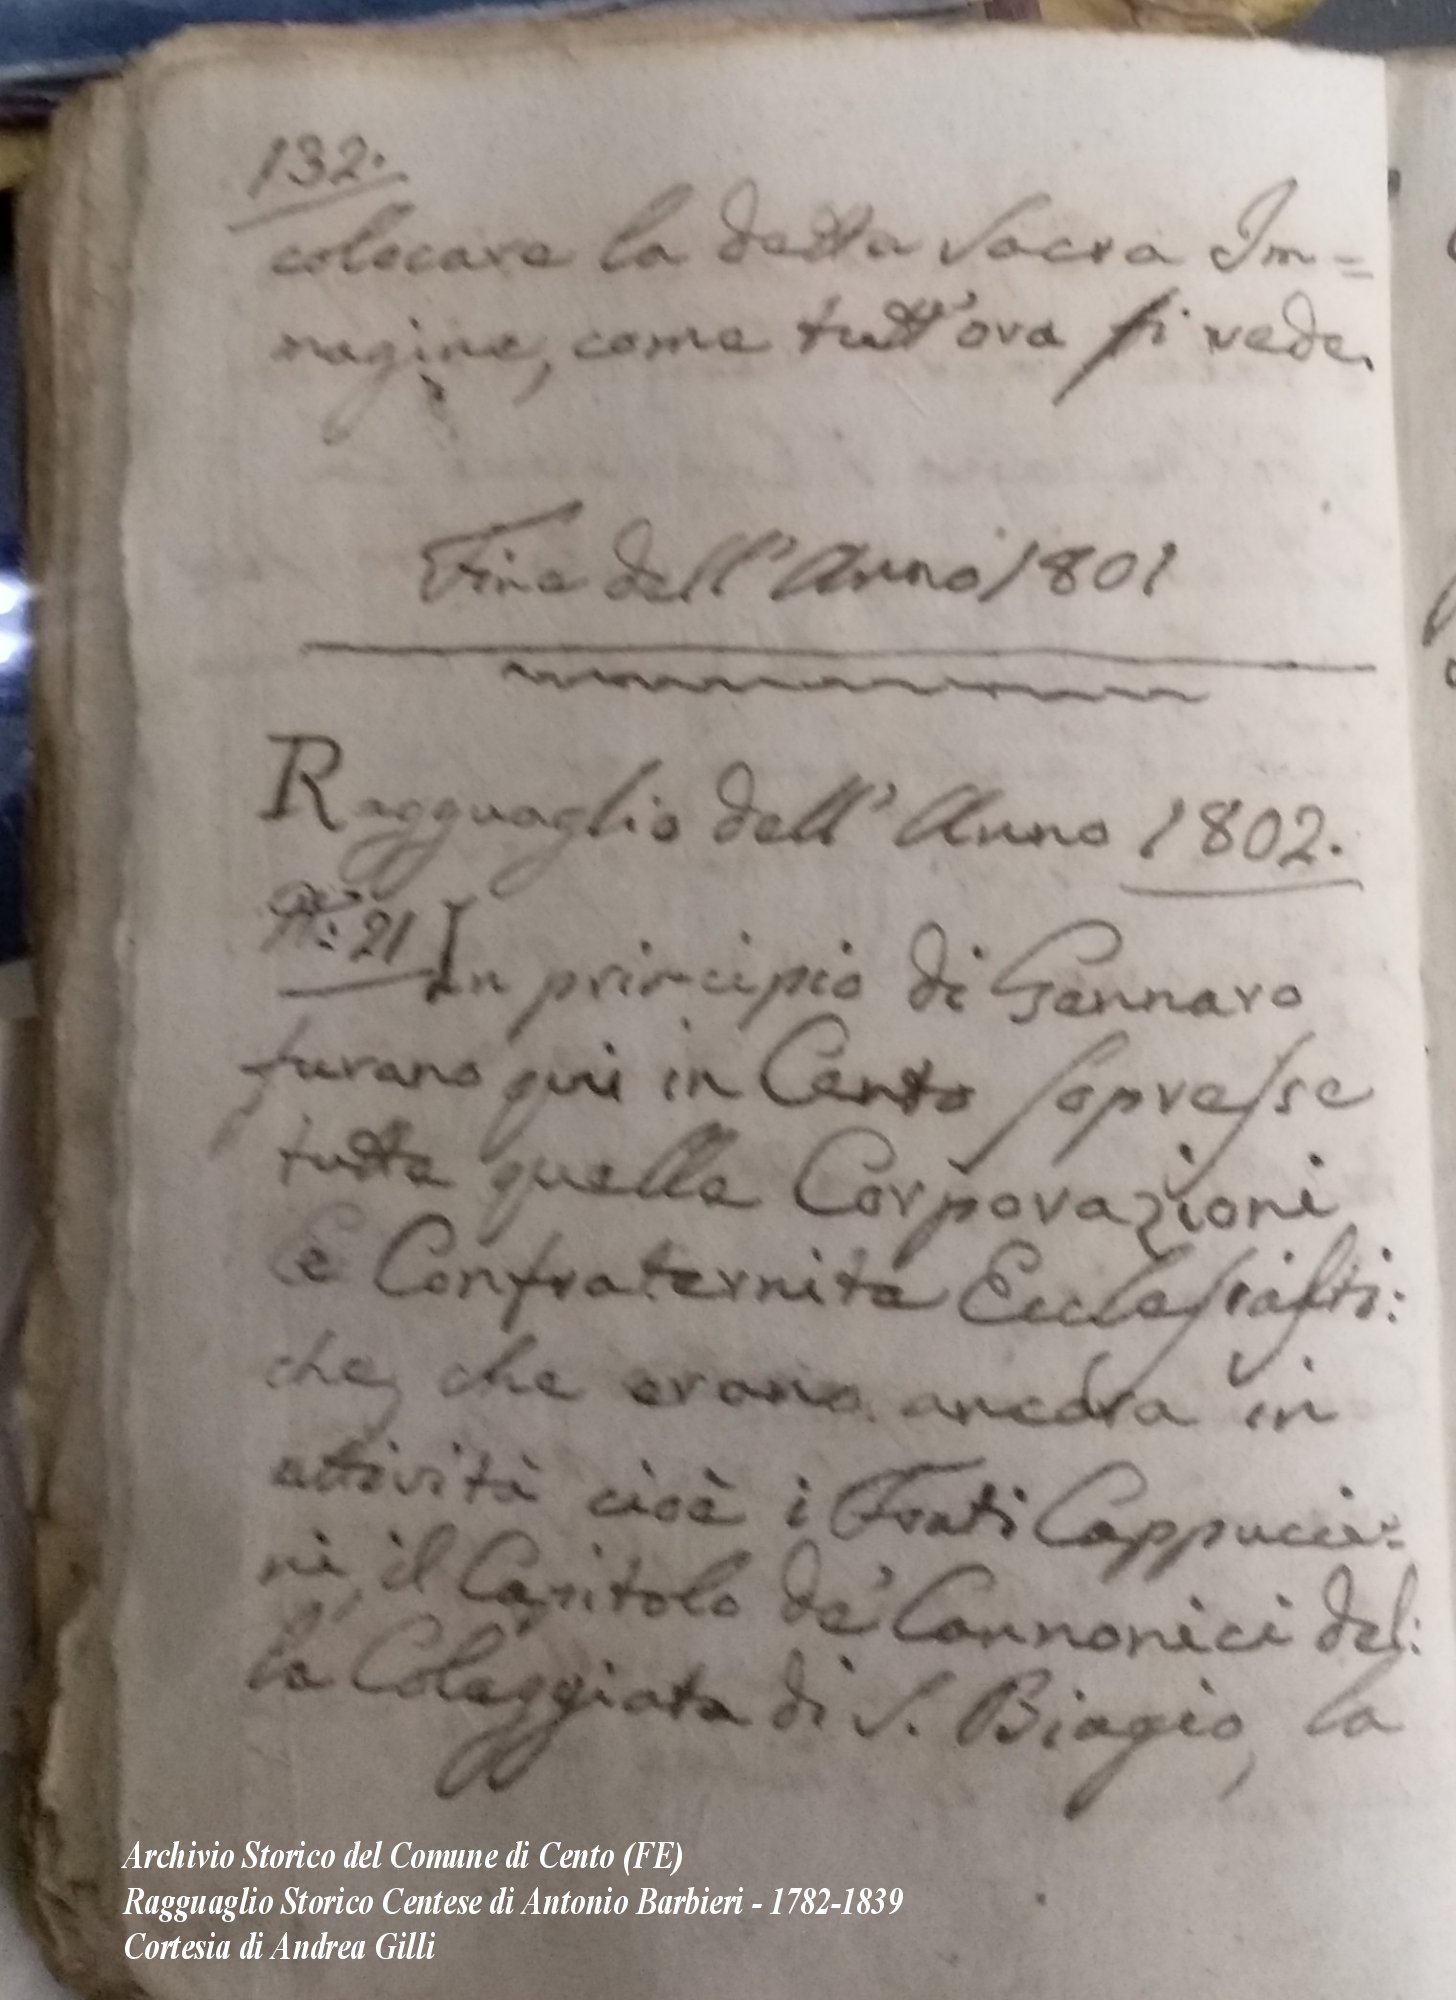 132.
colocare la detta Sacra Im=
magine, come tutt'ora si vede.
Fine dell'Anno 1801
Ragguaglio dell'Anno 1802.
N.° 21 In principio di Gennaro
furano qui in Cento sopresse
tutte quelle Corporazioni
e Confraternite Ecclesiasti:
che, che erano ancora in
attività cioè i Frati Cappucci=
ni, il Capitolo de' Cannonici del:
la Coleggiata di S. Biagio, la
Archivio Storico del Comune di Cento (FE)
Ragguaglio Storico Centese di Antonio Barbieri - 1782-1839
Cortesia di Andrea Gilli